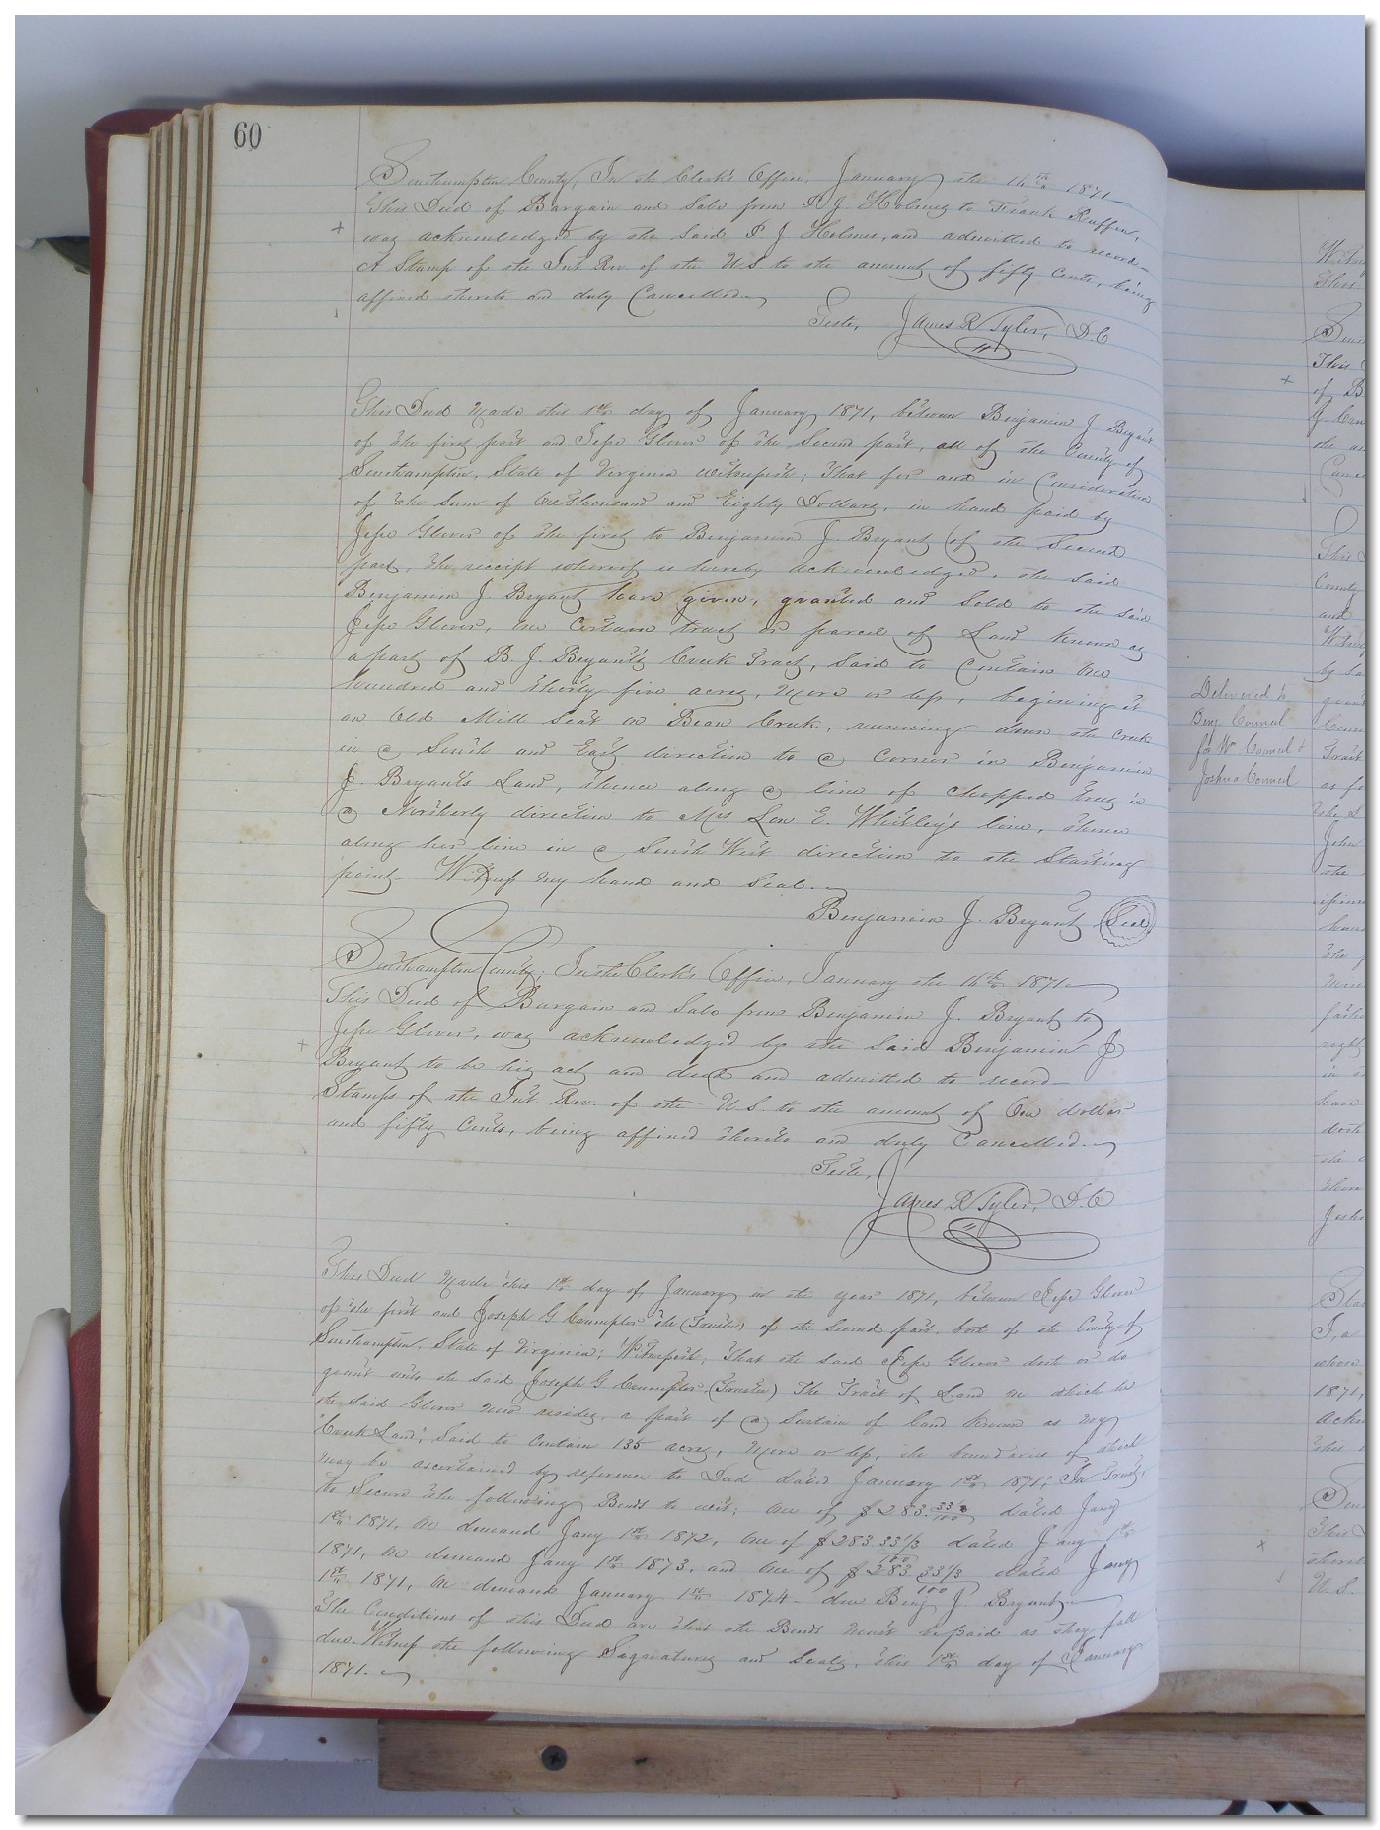 60
Southampton County, In the Clerk's Office, January the 16th 1871
This Deed of Bargain and Sale from P J Holmes to Frank Ruffin,
was acknowledged by the said P J Holmes, and admitted to record
A Stamp of the Int Rev of the U.S to the amount of fifty Cents, being
affixed thereto and duly Cancelled
Teste, James R Tyler, D.C
This Deed Made this 1st day of January 1871, between Benjamin J Bryant
of the first part and Jesse Glover of the Second part, all of the County of
Southampton, State of Virginia witnesseth; That for and in Consideration
of the Sum of One thousand and Eighty Dollars, in hand paid by
Jesse Glover of the first to Benjamin J. Bryant (of the Second
part, the receipt whereof is hereby acknowledged, the said
Benjamin J. Bryant have given, granted and Sold to the said
Jesse Glover, one Certain tract or parcel of Land known as
a part of B. J. Bryant's Creek Tract, said to Contain One
hundred and thirty five acres, More or less, beginning at
an Old Mill Seat on Bean Creek, running down the Creek
in a South and East direction to a Corner in Benjamin
J. Bryant's Land, thence along a line of Chopped trees in
a Northerly direction to Mrs Lou E. Whitley's line, thence
along her line in a South West direction to the Starting
point. Witness my hand and Seal.
Benjamin J. Bryant Seal
Southampton County; In the Clerk's Office, January the 16th 1871
This Deed of Bargain and Sale from Benjamin J. Bryant to
Jesse Glover, was acknowledged by the said Benjamin J
Bryant to be his act and deed and admitted to record
Stamps of the Int. Rev. of the U.S. to the amount of One dollar
and fifty Cents, being affixed thereto and duly Cancelled.
Teste,
James R Tyler, D.C
This Deed Made this 1st day of January in the year 1871, between Jesse Glover
of the first and Joseph G Crumpler the (Trustee) of the Second part, both of the County of
Southampton, State of Virginia; Witnesseth, That the said Jesse Glover doth or do
grant unto the said Joseph G Crumpler (Trustee) The Tract of Land on which he
the said Glover now resides, a part of a Certain of land known as my
"Creek Land", Said to Contain 135 acres, More or less, the boundaries of which
may be ascertained by reference to Deed dated January 1st 1871; In Trust,
to Secure the following Bonds to wit; One of $283.33⅓/100 dated Jany
1st 1871, on demand Jany 1st 1872, One of $283 33⅓/100 dated Jany 1st
1871, on demand Jany 1st 1873, and One of $283 33⅓/100 dated Jany
1st 1871, on demand January 1st 1874 due Benj J. Bryant
The Conditions of this Deed are that the Bonds must be paid as they fall
due. Witness the following Signatures and Seals, this 1st day of January
1871.
Delivered to
Benj Council
for Wm Council &
Joshua Council